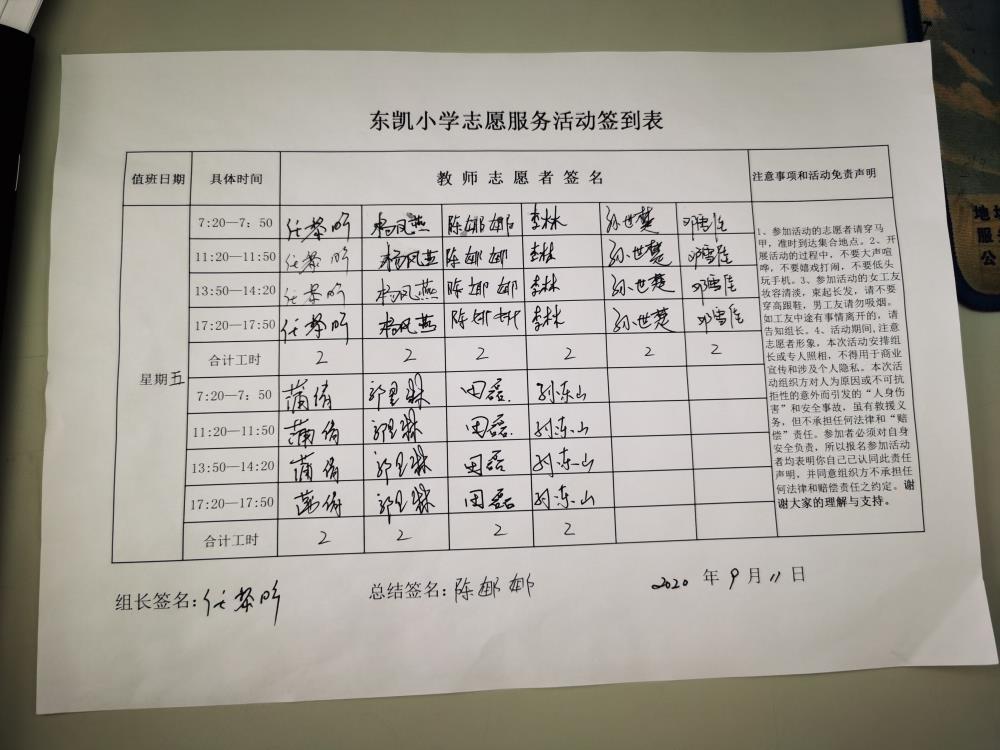 东凯小学志愿服务活动签到表
值班日期 具体时间 教师志愿者签名 注意事项和活动免责声明
7:20—7:50 任黎昕 杨凤燕 陈娜娜 李林 孙世楚 邓雪莲
11:20—11:50 任黎昕 杨凤燕 陈娜娜 李林 孙世楚 邓雪莲
13:50—14:20 任黎昕 杨凤燕 陈娜娜 李林 孙世楚 邓雪莲
17:20—17:50 任黎昕 杨凤燕 陈娜娜 李林 孙世楚 邓雪莲
合计工时 2 2 2 2 2 2
星期五
7:20—7:50 蒲倩 田磊 孙东山
11:20—11:50 蒲倩 田磊 孙东山
13:50—14:20 蒲倩 田磊 孙东山
17:20—17:50 蒲倩 田磊 孙东山
合计工时 2 2 2 2
1、参加活动的志愿者请穿马
甲，准时到达集合地点。2、开
展活动的过程中，不要大声喧
哗，不要嬉戏打闹，不要低头
玩手机。3、参加活动的女工友
妆容清淡，束起长发，请不要
穿高跟鞋，男工友请勿吸烟。
如工友中途有事情离开的，请
告知组长。4、活动期间,注意
志愿者形象，本次活动安排组
长或专人照相，不得用于商业
宣传和涉及个人隐私。本次活
动组织方对人为原因或不可抗
拒性的意外而引发的“人身伤
害”和安全事故，虽有救援义
务，但不承担任何法律和“赔
偿”责任。参加者必须对自身
安全负责，所以报名参加活动
者均表明你自己已认同此责任
声明，并同意组织方不承担任
何法律和赔偿责任之约定。谢
谢大家的理解与支持。
组长签名：任黎昕 总结签名：陈娜娜 2020 年 9 月 11 日